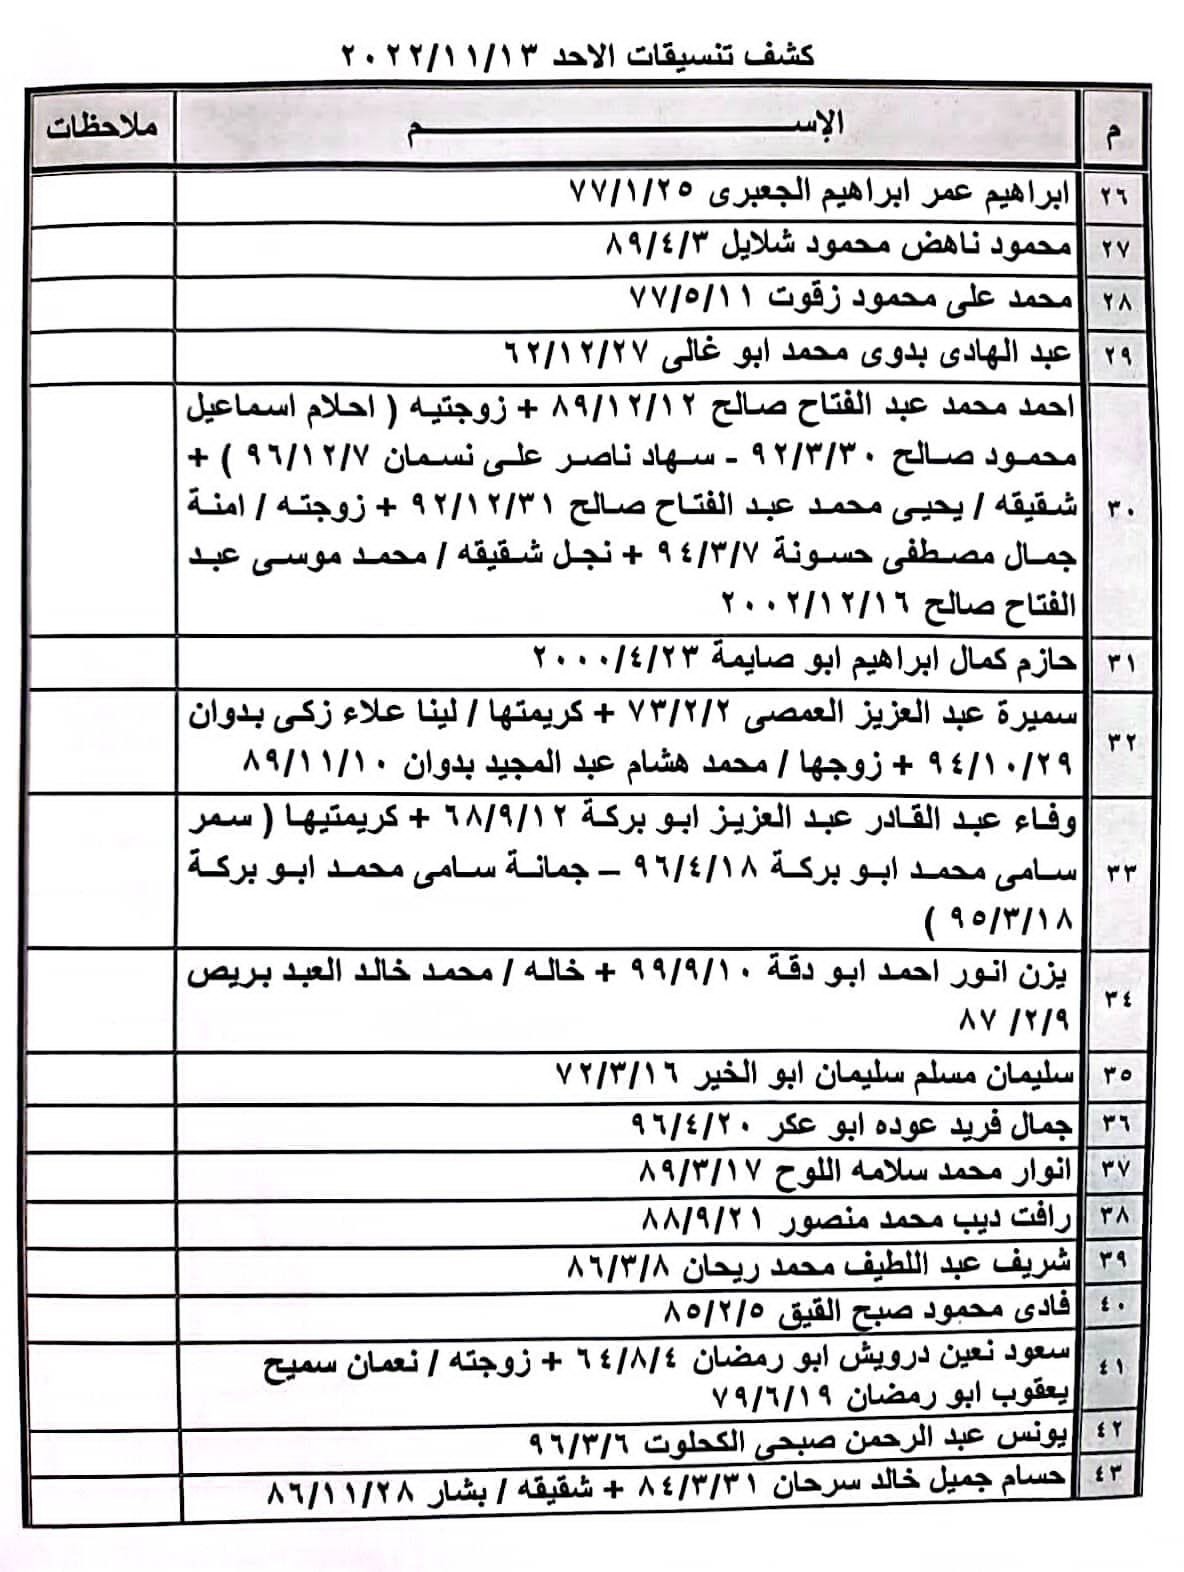 كشف تنسيقات الاحد ٢٠٢٢/١١/١٣
م الإســــــــم ملاحظات
٢٦ ابراهيم عمر ابراهيم الجعبرى ٧٧/١/٢٥
٢٧ محمود ناهض محمود شلايل ٨٩/٤/٣
٢٨ محمد على محمود زقوت ٧٧/٥/١١
٢٩ عبد الهادى بدوى محمد ابو غالى ٦٢/١٢/٢٧
٣٠ احمد محمد عبد الفتاح صالح ٨٩/١٢/١٢ + زوجتيه ( احلام اسماعيل
محمود صالح ٩٢/٣/٣٠ - سهاد ناصر على نسمان ٩٦/١٢/٧ ) +
شقيقه / يحيى محمد عبد الفتاح صالح ٩٢/١٢/٣١ + زوجته / امنة
جمال مصطفى حسونة ٩٤/٣/٧ + نجل شقيقه / محمد موسى عبد
الفتاح صالح ٢٠٠٢/١٢/١٦
٣١ حازم كمال ابراهيم ابو صايمة ٢٠٠٠/٤/٢٣
٣٢ سميرة عبد العزيز العمصى ٧٣/٢/٢ + كريمتها / لينا علاء زكى بدوان
٩٤/١٠/٢٩ + زوجها / محمد هشام عبد المجيد بدوان ٨٩/١١/١٠
٣٣ وفاء عبد القادر عبد العزيز ابو بركة ٦٨/٩/١٢ + كريمتيها ( سمر
سامى محمد ابو بركة ٩٦/٤/١٨ – جمانة سامى محمد ابو بركة
٩٥/٣/١٨ )
٣٤ يزن انور احمد ابو دقة ٩٩/٩/١٠ + خاله / محمد خالد العبد بريص
٨٧ /٢/٩
٣٥ سليمان مسلم سليمان ابو الخير ٧٢/٣/١٦
٣٦ جمال فريد عوده ابو عكر ٩٦/٤/٢٠
٣٧ انوار محمد سلامه اللوح ٨٩/٣/١٧
٣٨ رافت ديب محمد منصور ٨٨/٩/٢١
٣٩ شريف عبد اللطيف محمد ريحان ٨٦/٣/٨
٤٠ فادى محمود صبح القيق ٨٥/٢/٥
٤١ سعود نعين درويش ابو رمضان ٦٤/٨/٤ + زوجته / نعمان سميح
يعقوب ابو رمضان ٧٩/٦/١٩
٤٢ يونس عبد الرحمن صبحى الكحلوت ٩٦/٣/٦
٤٣ حسام جميل خالد سرحان ٨٤/٣/٣١ + شقيقه / بشار ٨٦/١١/٢٨